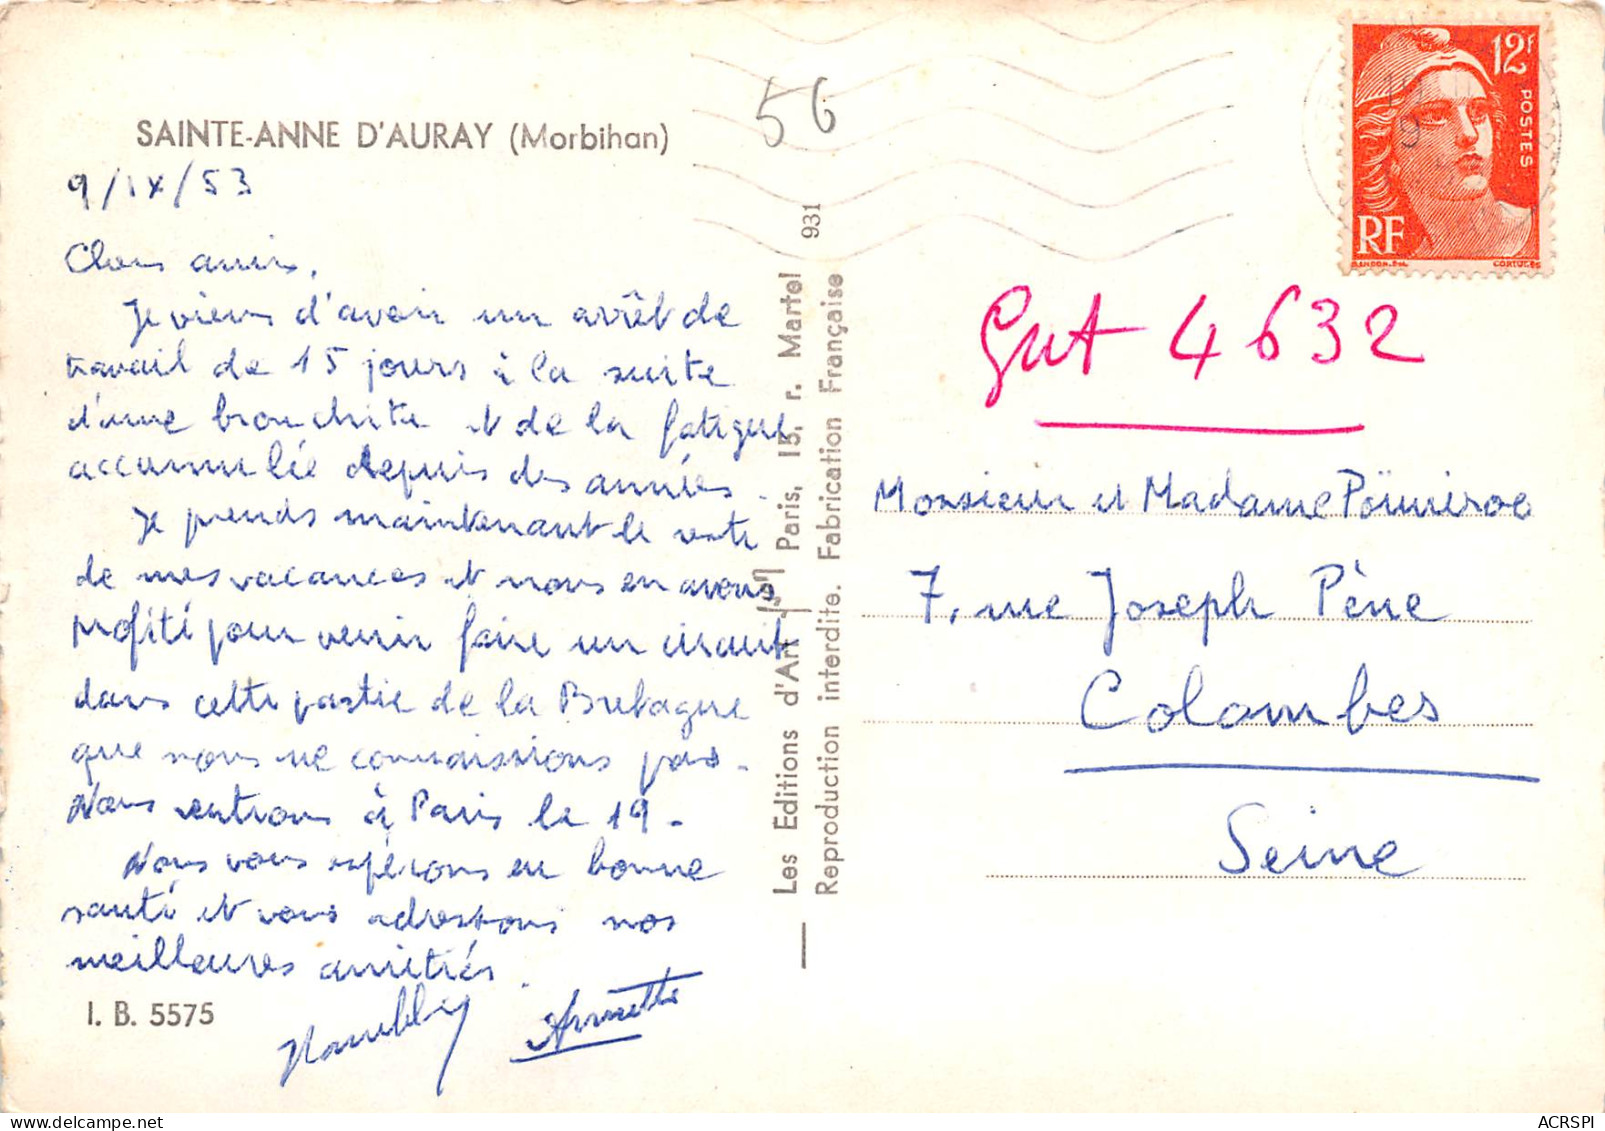 SAINTE-ANNE D'AURAY (Morbihan)
56
9/IX/53
Chers amis,
Je viens d'avoir un arrêt de
travail de 15 jours à la suite
d'une bronchite et de la fatigue
accumulée depuis des années.
Je prends maintenant le reste
de mes vacances et nous en avons
profité pour venir faire un circuit
dans cette partie de la Bretagne
que nous ne connaissions pas.
Nous rentrons à Paris le 19.
Nous vous espérons en bonne
santé et vous adressons nos
meilleures amitiés.
Annette
I. B. 5575
Les Editions d'Art Paris, 15, r. Martel 931
Reproduction interdite. Fabrication Française
12F
POSTES
RF
GANDON.DEL
CORTOT.SC
Gut 4632
Monsieur et Madame
7, rue Joseph Pène
Colombes
Seine
ACRSPI